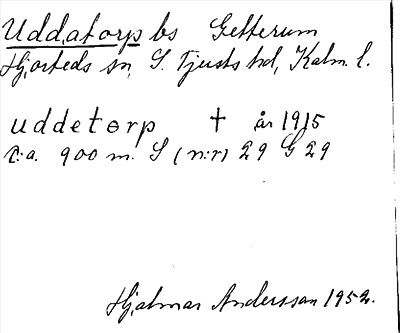 Uddatorp bs Getterum
Hjorteds sn, S. Tjusts hd, Kalm. l.
uddetorp † år 1915
c:a. 900 m. S (n:r) 29 G 29
Hjalmar Andersson 1952.